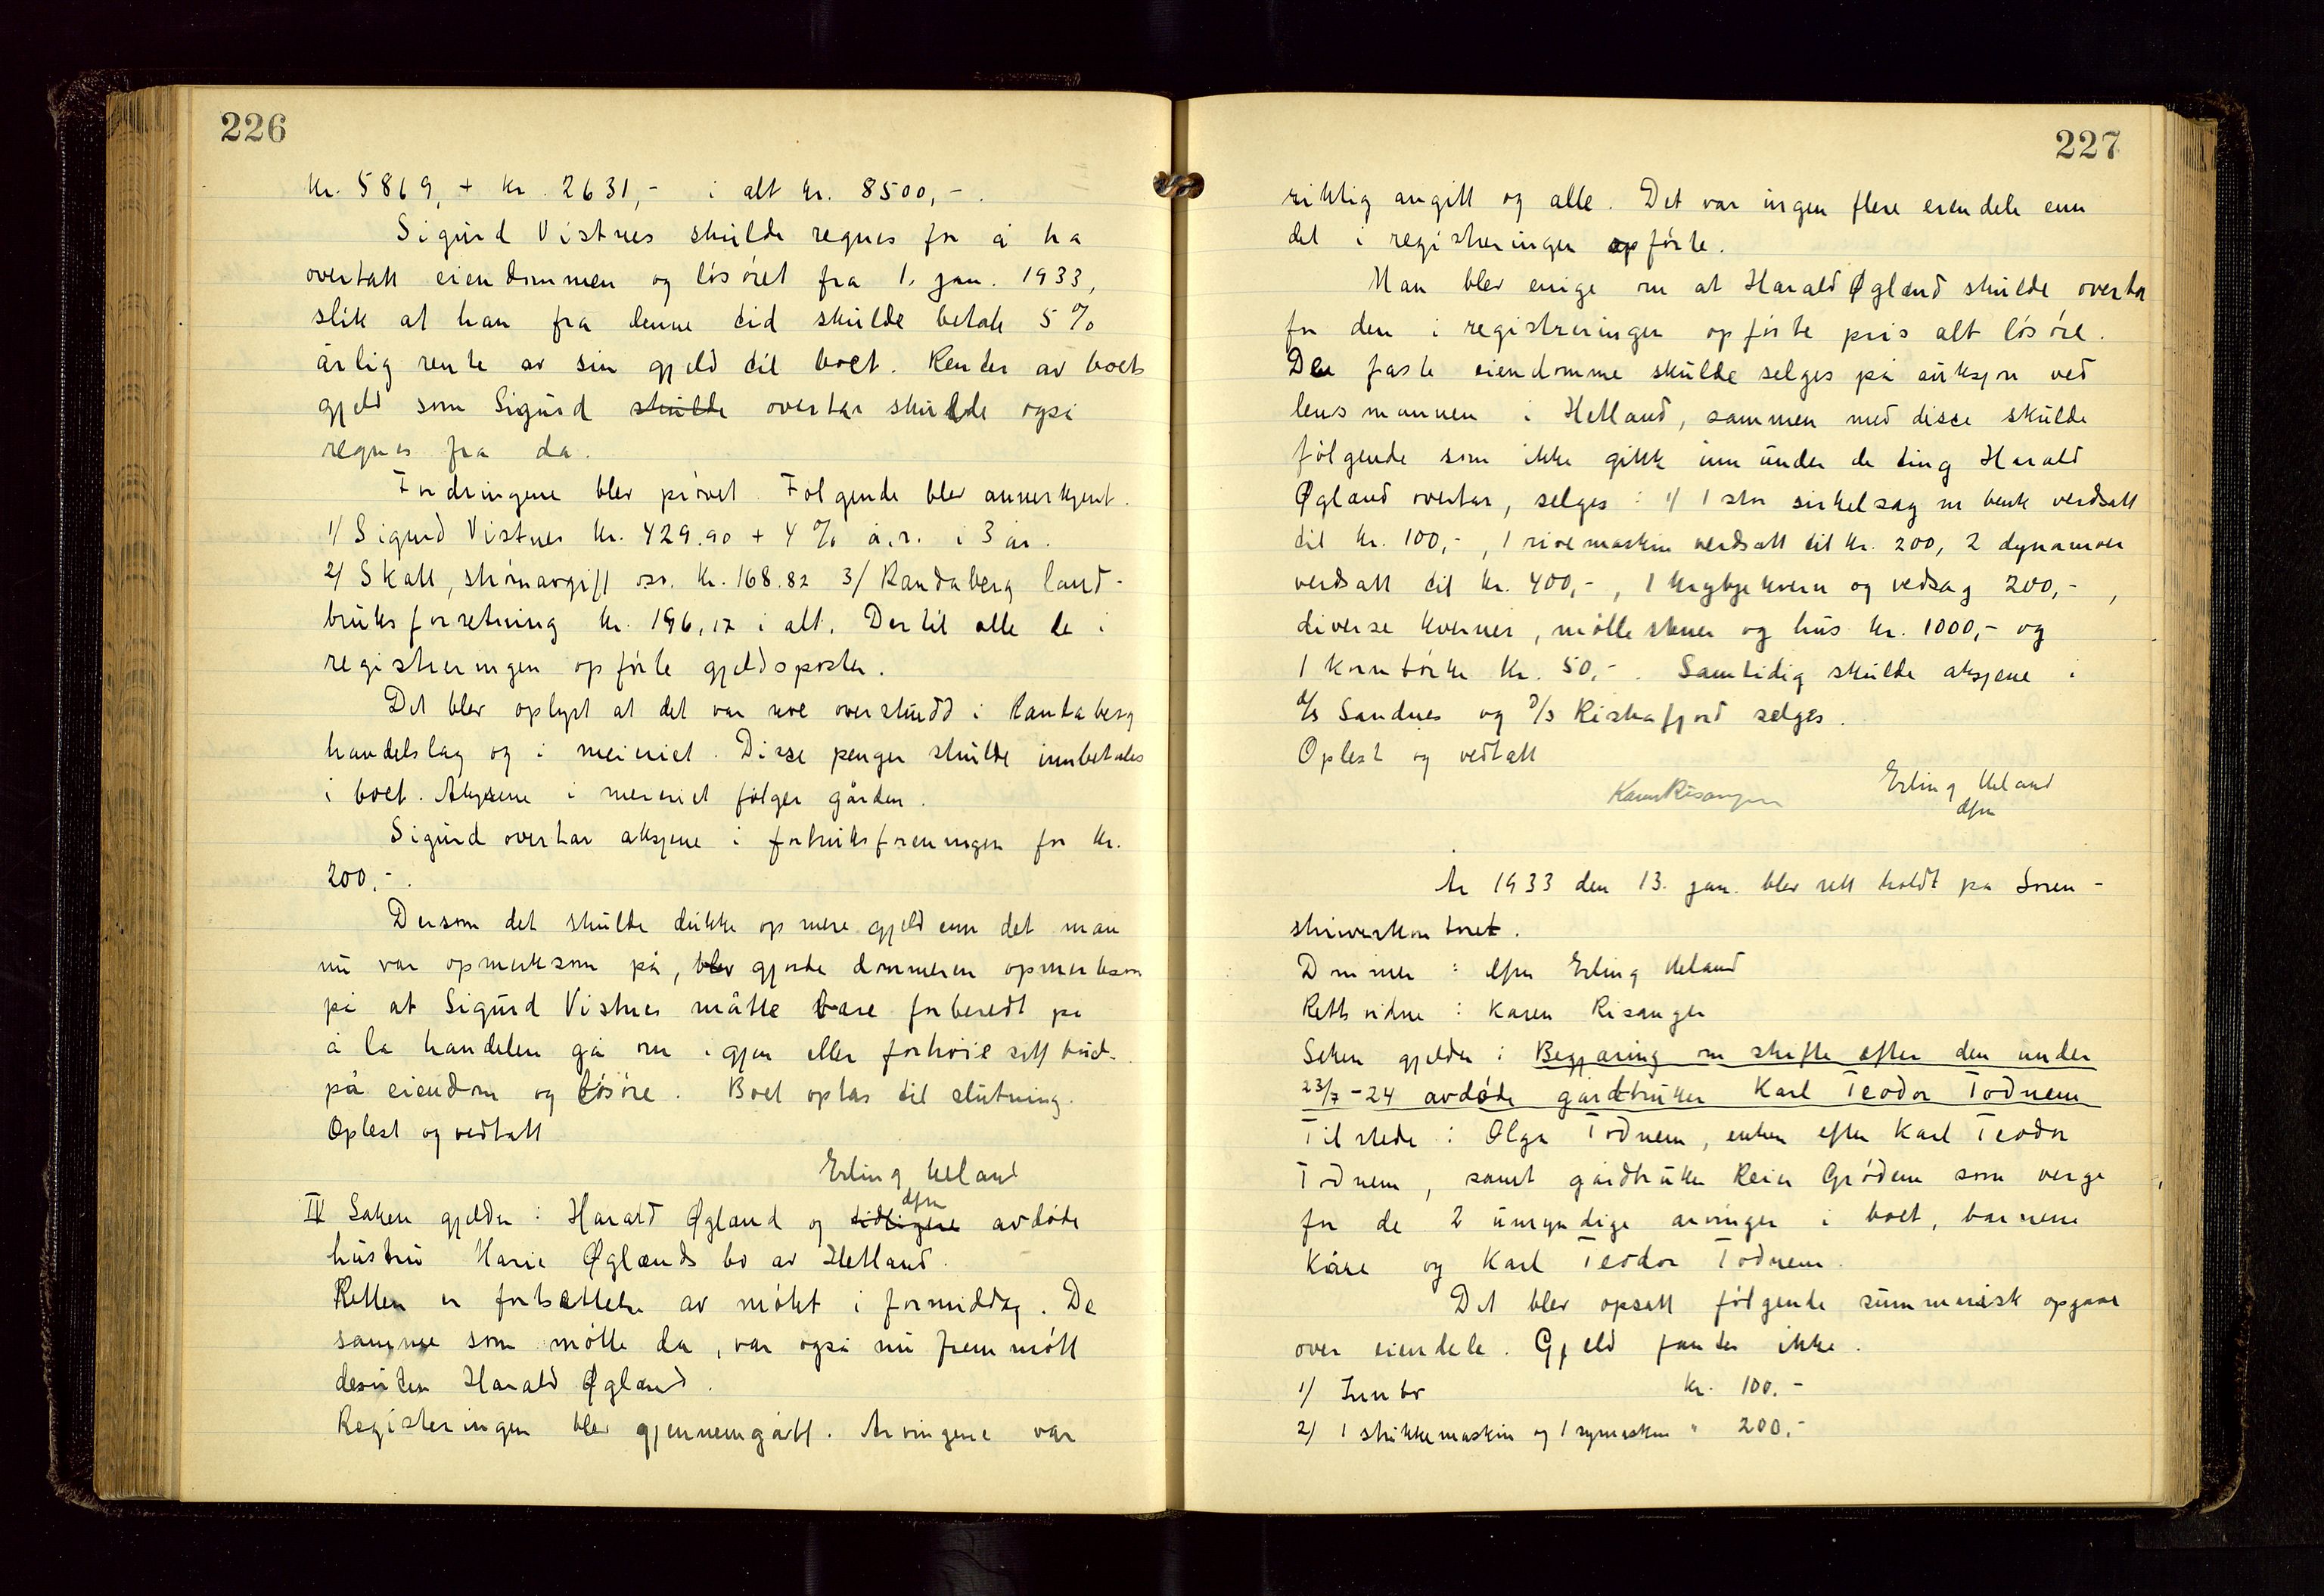 226
kr. 5869,- + kr. 2631,- i alt kr. 8500,-.
Sigurd Vistnes skulde regnes for å ha
overtatt eiendommen og løsøret fra 1. jan. 1933,
slik at han fra denne tid skulde betale 5%
årlig rente av sin gjeld til boet. Renter av boets
gjeld som Sigurd skulde overtar skulde også
regnes fra da.
Fordringene blev prøvet. Følgende blev annerkjent.
1/ Sigurd Vistnes kr. 429.90 + 4% å.r. i 3 år.
2/ Skatt, strømavgift osv. kr. 168.82 3/ Randaberg land-
bruksforretning kr. 196,17 i alt. Dertil alle de i
registreringen opførte gjeldsposter.
Det blev oplyst at det var noe overskudd i Randaberg
handelslag og i meieriet. Disse penger skulde innbetales
i boet. Aksjene i meieriet følger gården.
Sigurd overtar aksjene i forbruksforeningen for kr.
200,-.
Dersom det skulde dukke op mere gjeld enn det man
nu var opmerksom på, blev gjorde dommeren opmerksom
på at Sigurd Vistnes måtte være forberedt på
å la handelen gå om igjen eller forhøie sitt bud
på eiendom og løsøre. Boet optas til slutning.
Oplest og vedtatt
Erling Ueland
dfm
IV Saken gjelder: Harald Øgland og tidligere avdøde
hustru Marie Øglænds bo av Hetland.
Retten er fortsættelse av møtet i formiddag. De
samme som møtte da, var også nu fremmøtt
desuten Harald Øgland.
Registeringen blev gjennemgått. Arvingene var
227
riktig angitt og alle. Det var ingen flere eiendele enn
det i registreringen opførte.
Man blev enige om at Harald Øgland skulde overta
for den i registreringen opførte pris alt løsøre.
De faste eiendomme skulde selges på auksjon ved
lensmannen i Hetland, sammen med disse skulde
følgende som ikke gikk inn under de ting Harald
Øgland overtar, selges: 1/ 1 stor sirkelsag m benk verdsatt
til kr. 100,-, 1 rivemaskin verdsatt til kr. 200, 2 dynamoer
verdsatt til kr. 400,-, 1 kvern og vedsag 200,-,
diverse kverner, møllestener og hus kr. 1000,- og
1 korntørke kr. 50,-. Samtidig skulde aksjene i
d/s Sandnes og D/S Riskafjord selges.
Oplest og vedtatt
Karen Risanger Erling Ueland
dfm
År 1933 den 13. jan. blev rett holdt på Soren-
skriverkontoret.
Dommer: dfm Erling Ueland
Rettsvidne: Karen Risanger
Saken gjelder: Begjæring om skifte efter den under
23/7-24 avdøde gårdbruker Karl Teodor Todnem
Tilstede: Olga Todnem, enken efter Karl Teodor
Todnem, samt gårdbruker Reier Grødem som verge
for de 2 umyndige arvinger i boet, barnene
Kåre og Karl Teodor Todnem.
Det blev opsatt følgende summarisk opgave
over eiendele. Gjeld fantes ikke.
1/ Innbo kr. 100.-
2/ 1 strikkemaskin og 1 symaskin " 200.-